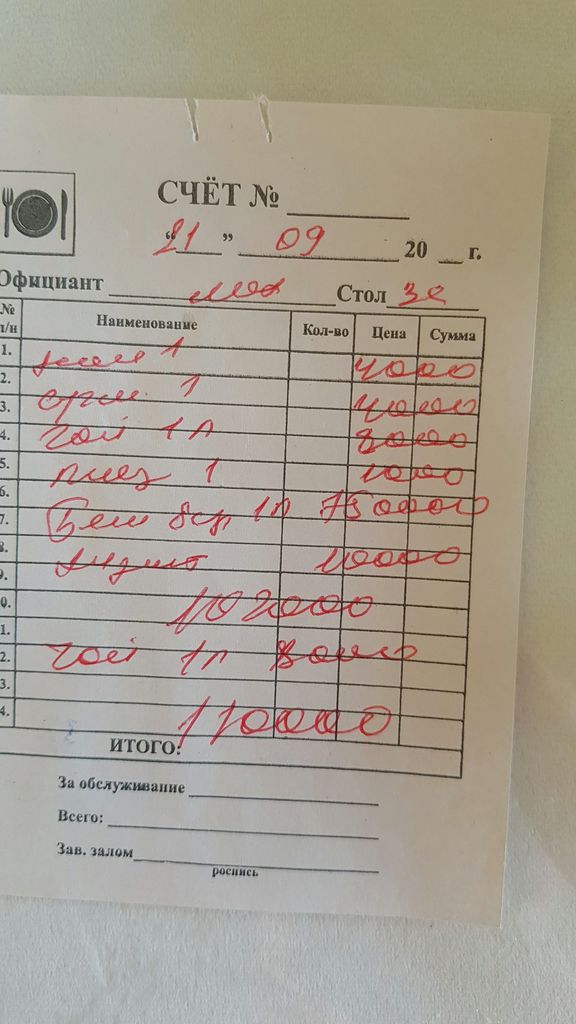 СЧЁТ № ________
"21" 09 20 __ г.
Официант Стол
№ п/н Наименование Кол-во Цена Сумма
1. нон 1 4000
2. 1 4000
3. чой 1л 8000
4. 1 1000
5.
6. 1л 75000
7.
8. 10000
9.
10. 102000
11.
12. чой 1л 8000
13.
14. 110000
ИТОГО:
За обслуживание
Всего:
Зав. залом
роспись